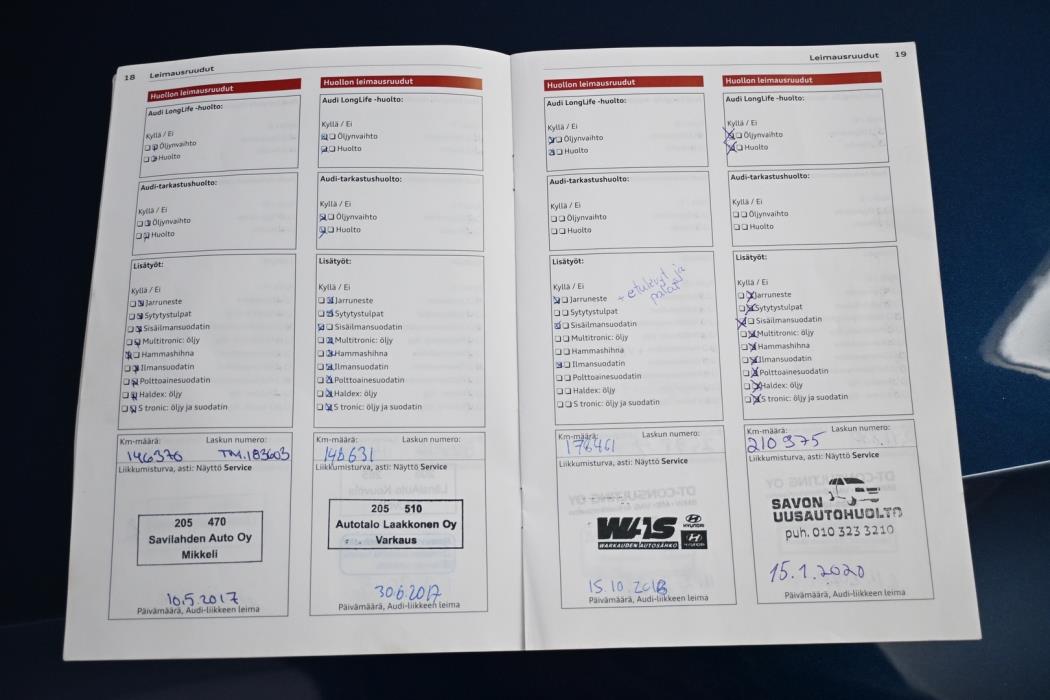 18 Leimausruudut
Huollon leimausruudut
Audi LongLife -huolto:
Kyllä / Ei
Öljynvaihto
Huolto
Audi-tarkastushuolto:
Kyllä / Ei
Öljynvaihto
Huolto
Lisätyöt:
Kyllä / Ei
Jarruneste
Sytytystulpat
Sisäilmansuodatin
Multitronic: öljy
Hammashihna
Ilmansuodatin
Polttoainesuodatin
Haldex: öljy
S tronic: öljy ja suodatin
Km-määrä: Laskun numero:
146376 TM.183603
Liikkumisturva, asti: Näyttö Service
205 470
Savilahden Auto Oy
Mikkeli
10.5.2017
Päivämäärä, Audi-liikkeen leima
Huollon leimausruudut
Audi LongLife -huolto:
Kyllä / Ei
Öljynvaihto
Huolto
Audi-tarkastushuolto:
Kyllä / Ei
Öljynvaihto
Huolto
Lisätyöt:
Kyllä / Ei
Jarruneste
Sytytystulpat
Sisäilmansuodatin
Multitronic: öljy
Hammashihna
Ilmansuodatin
Polttoainesuodatin
Haldex: öljy
S tronic: öljy ja suodatin
Km-määrä: Laskun numero:
148631
Liikkumisturva, asti: Näyttö Service
205 510
Autotalo Laakkonen Oy
Varkaus
30.6.2017
Päivämäärä, Audi-liikkeen leima
Leimausruudut 19
Huollon leimausruudut
Audi LongLife -huolto:
Kyllä / Ei
Öljynvaihto
Huolto
Audi-tarkastushuolto:
Kyllä / Ei
Öljynvaihto
Huolto
Lisätyöt:
Kyllä / Ei
Jarruneste + etulevyt ja
palat
Sytytystulpat
Sisäilmansuodatin
Multitronic: öljy
Hammashihna
Ilmansuodatin
Polttoainesuodatin
Haldex: öljy
S tronic: öljy ja suodatin
Km-määrä: Laskun numero:
178461
Liikkumisturva, asti: Näyttö Service
WAS
WARKAUDEN AUTOSÄHKÖ
HYUNDAI
HYUNDAI
15.10.2018
Päivämäärä, Audi-liikkeen leima
Huollon leimausruudut
Audi LongLife -huolto:
Kyllä / Ei
Öljynvaihto
Huolto
Audi-tarkastushuolto:
Kyllä / Ei
Öljynvaihto
Huolto
Lisätyöt:
Kyllä / Ei
Jarruneste
Sytytystulpat
Sisäilmansuodatin
Multitronic: öljy
Hammashihna
Ilmansuodatin
Polttoainesuodatin
Haldex: öljy
S tronic: öljy ja suodatin
Km-määrä: Laskun numero:
210975
Liikkumisturva, asti: Näyttö Service
SAVON
UUSAUTOHUOLTO
puh. 010 323 3210
15.1.2020
Päivämäärä, Audi-liikkeen leima